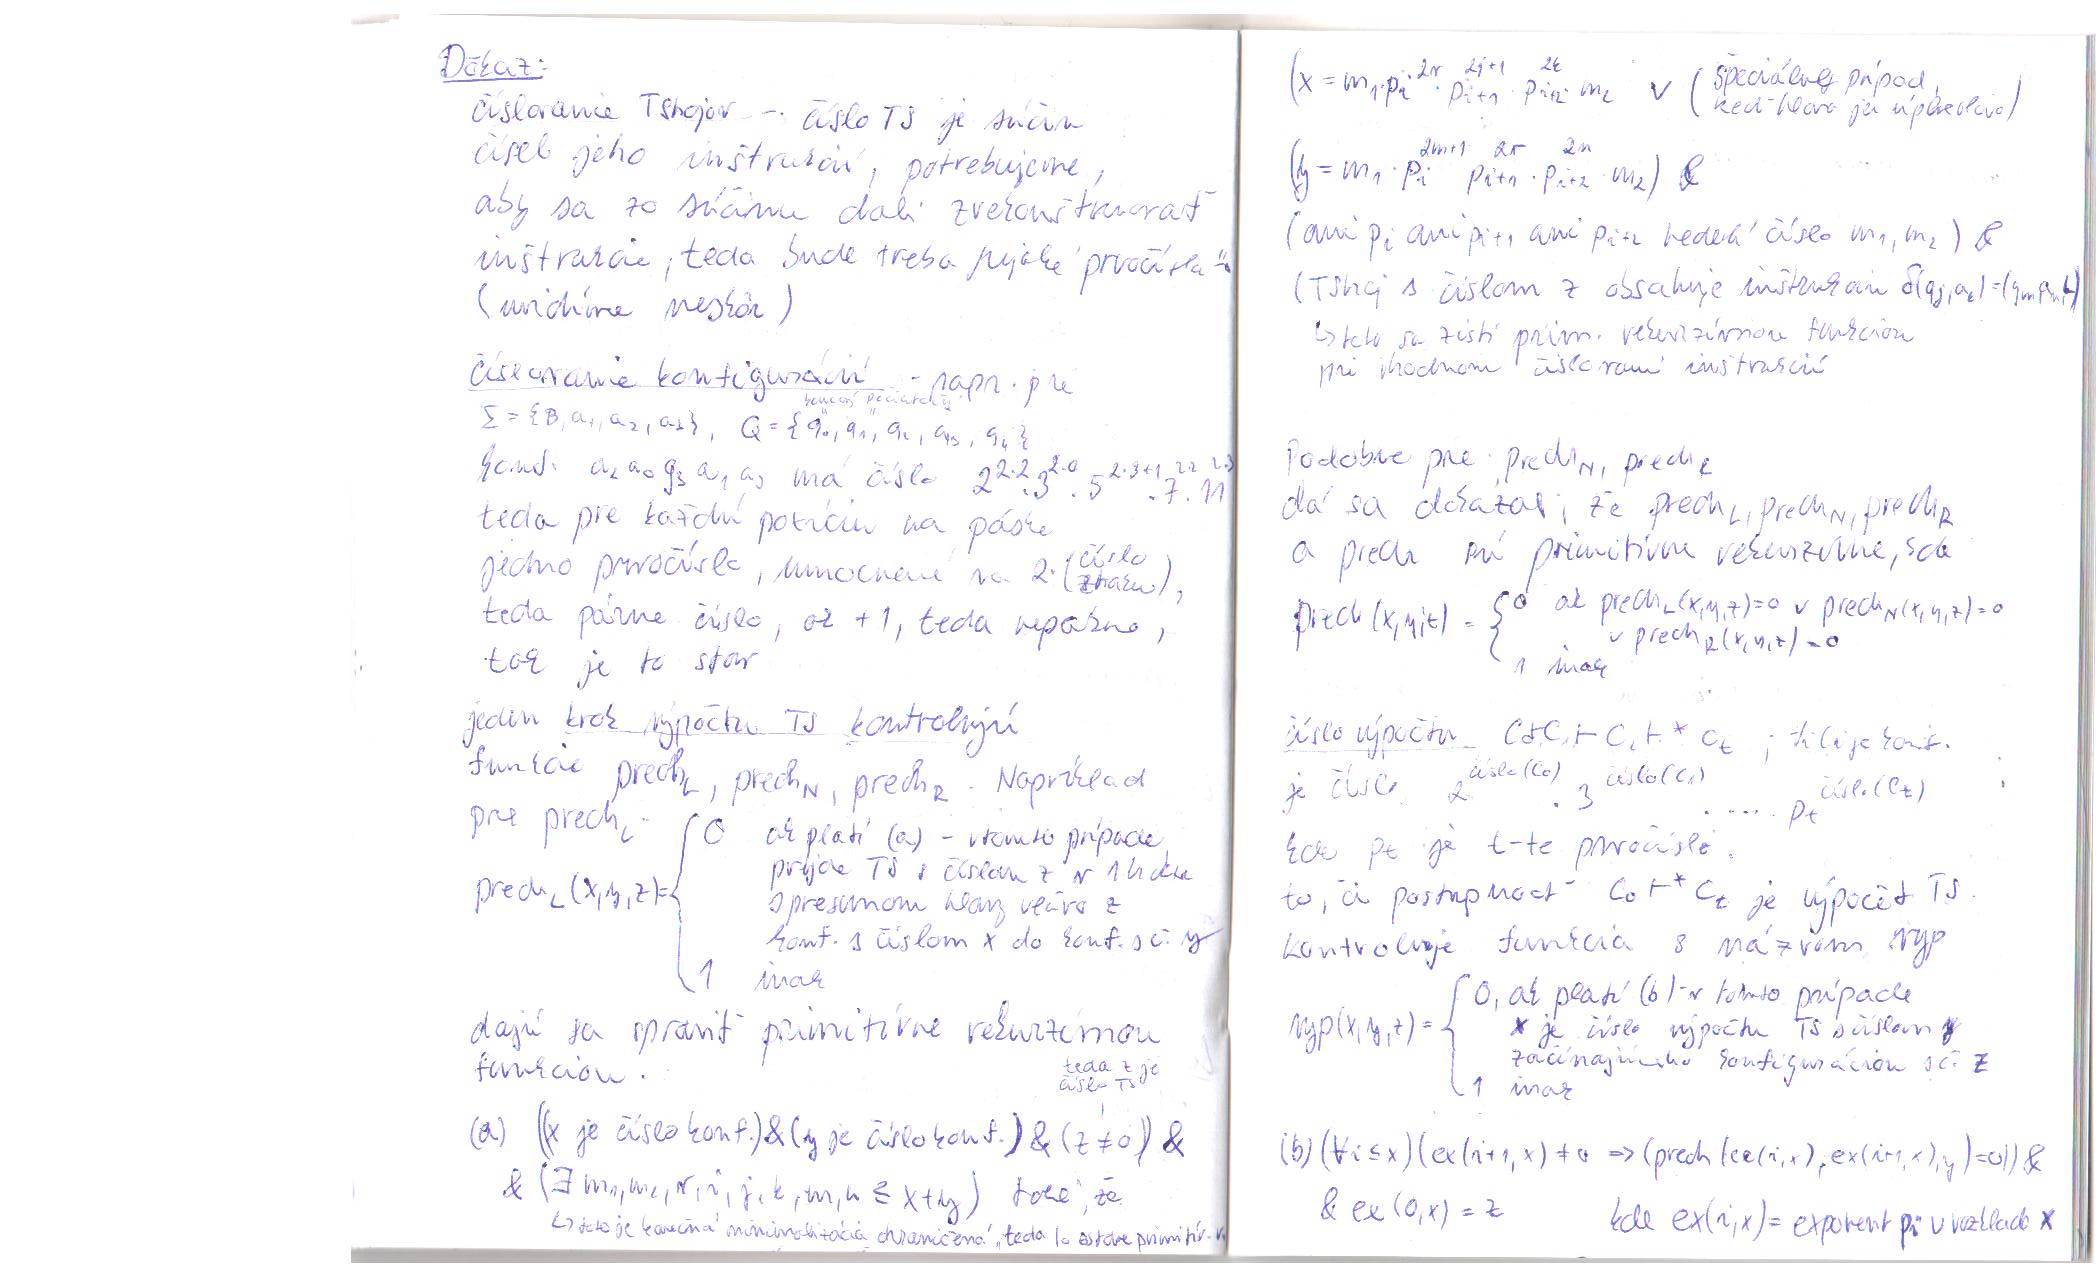 Dôkaz:
číslovanie TStrojov – číslo TS je súčin
čísel jeho inštrukcií, potrebujeme,
aby sa zo súčinu dali zrekonštruovať
inštrukcie, teda bude treba nejaké prvočísla
(uvidíme neskôr)
číslovanie konfigurácií - napr. pre
koncový počiatočný
Σ = {B, a₁, a₂, a₃}, Q = {q₀, q₁, q₂, q₃, q₄}
konf. a₂ a₀ q₃ a₁ a₃ má číslo 2^2·2 · 3^2·0 · 5^2·3+1 · 7^2·2 · 11^2·3
teda pre každú pozíciu na páske
jedno prvočíslo, umocnené na 2·(číslo znaku),
teda párne číslo, ak +1, teda nepárno,
tak je to stav
jeden krok výpočtu TS kontrolujú
funkcie prech_L, prech_N, prech_R. Napríklad
pre prech_L
prech_L(x,y,z) = { 0 ak platí (a) – v tomto prípade
prejde TS s číslom z v 1 kroku
s presunom hlavy vľavo z
konf. s číslom x do konf. s č. y
1 inak
dajú sa spraviť primitívne rekurzívnou
funkciou.
teda z je
číslo TS
(a) ((x je číslo konf.) & (y je číslo konf.) & (z ≠ 0)) &
& (∃ m₁, m₂, r, i, j, k, m, n ≤ x+y) také, že
↳ toto je konečná minimalizácia ohraničená, teda to ostane primitív.
(x = m₁ · p_i^2r · p_i+1^2j+1 · p_i+2^2k m₂ ∨ (špeciálny prípad,
keď hlava je úplne vľavo)
(y = m₁ · p_i^2m+1 p_i+1^2r · p_i+2^2n · m₂) &
(ani p_i ani p_i+1 ani p_i+2 nedelí číslo m₁, m₂) &
(TStroj s číslom z obsahuje inštrukciu δ(q_j, a_k) = (q_m, a_n, L)
↳ toto sa zistí prim. rekurzívnou funkciou
pri vhodnom číslovaní inštrukcií
Podobne pre prech_N, prech_R
dá sa dokázať, že prech_L, prech_N, prech_R
a prech sú primitívne rekurzívne, kde
prech(x,y,z) = { 0 ak prech_L(x,y,z)=0 ∨ prech_N(x,y,z)=0
∨ prech_R(x,y,z)=0
1 inak
číslo výpočtu C₀ ⊢ C₁ ⊢* C_t ; kde C_i je konf.
je číslo 2^číslo(C₀) · 3^číslo(C₁) · ..... p_t^číslo(C_t)
kde p_t je t-te prvočíslo.
to, či postupnosť C₀ ⊢* C_t je výpočet TS
kontroluje funkcia s názvom výp
výp(x,y,z) = { 0, ak platí (b) – v tomto prípade
x je číslo výpočtu TS s číslom y
začínajúceho konfiguráciou s č. z
1 inak
(b) (∀i ≤ x)(ex(i+1,x) ≠ 0 ⇒ (prech(ex(i,x), ex(i+1,x), y)=0)) &
& ex(0,x) = z kde ex(i,x) = exponent p_i v rozklade x